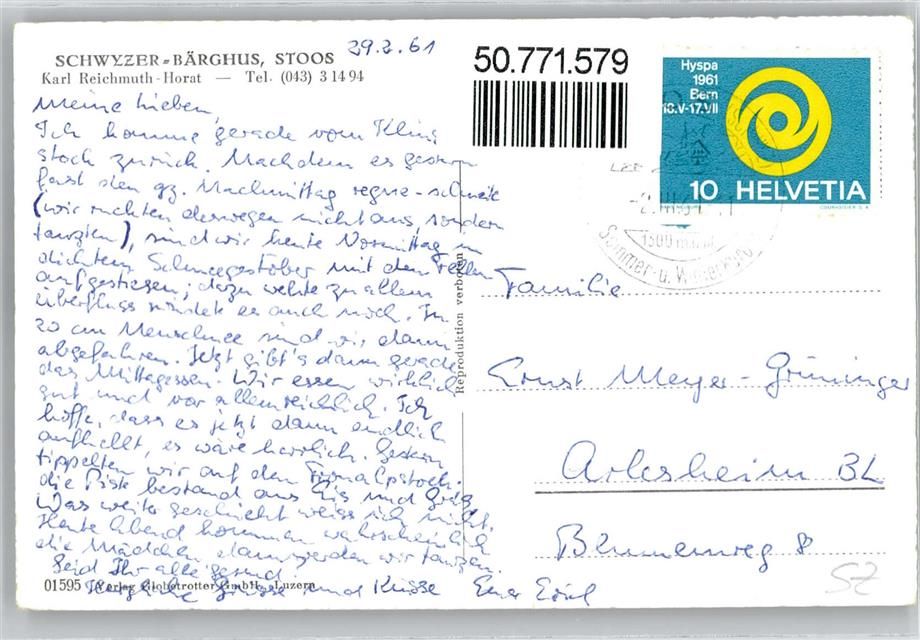 SCHWYZER-BÄRGHUS, STOOS
29.2.61
Karl Reichmuth-Horat — Tel. (043) 3 14 94
Meine Lieben,
Ich komme gerade vom Kling
stock zurück. Nachdem es gestern
fast den gz. Nachmittag regne-schneite
(wir rückten deswegen nicht aus, sondern
tanzten), sind wir heute Vormittag in
dichtem Schneegestöber mit den Fellen
aufgestiegen; dazu wehte zu allem
Überfluss windete es auch noch. In
20 cm Neuschnee sind wir dann
abgefahren. Jetzt gibt's dann gerade
das Mittagessen. Wir essen wirklich
gut und vor allem reichlich. Ich
hoffe, dass es jetzt dann endlich
aufhellt, es wäre herrlich. Gestern
tippelten wir auf den Fronalpstock.
die Piste bestand aus Eis und
Was weiter geschieht weiss ich nicht.
Heute Abend kommen wahrscheinlich
die Mädchen dann werden wir tanzen.
Seid Ihr alle gesund
Herzliche Grüsse und Küsse Euer
01595 Verlag Globetrotter GmbH., Luzern
Reproduktion verboten
50.771.579
Hyspa
1961
Bern
18.V-17.VII
10 HELVETIA
COURVOISIER S.A.
1300 m ü.M.
Sommer- u. Winterkurort
Familie
Ernst Meyer-Grüninger
Arlesheim BL
Blumenweg 8
SZ